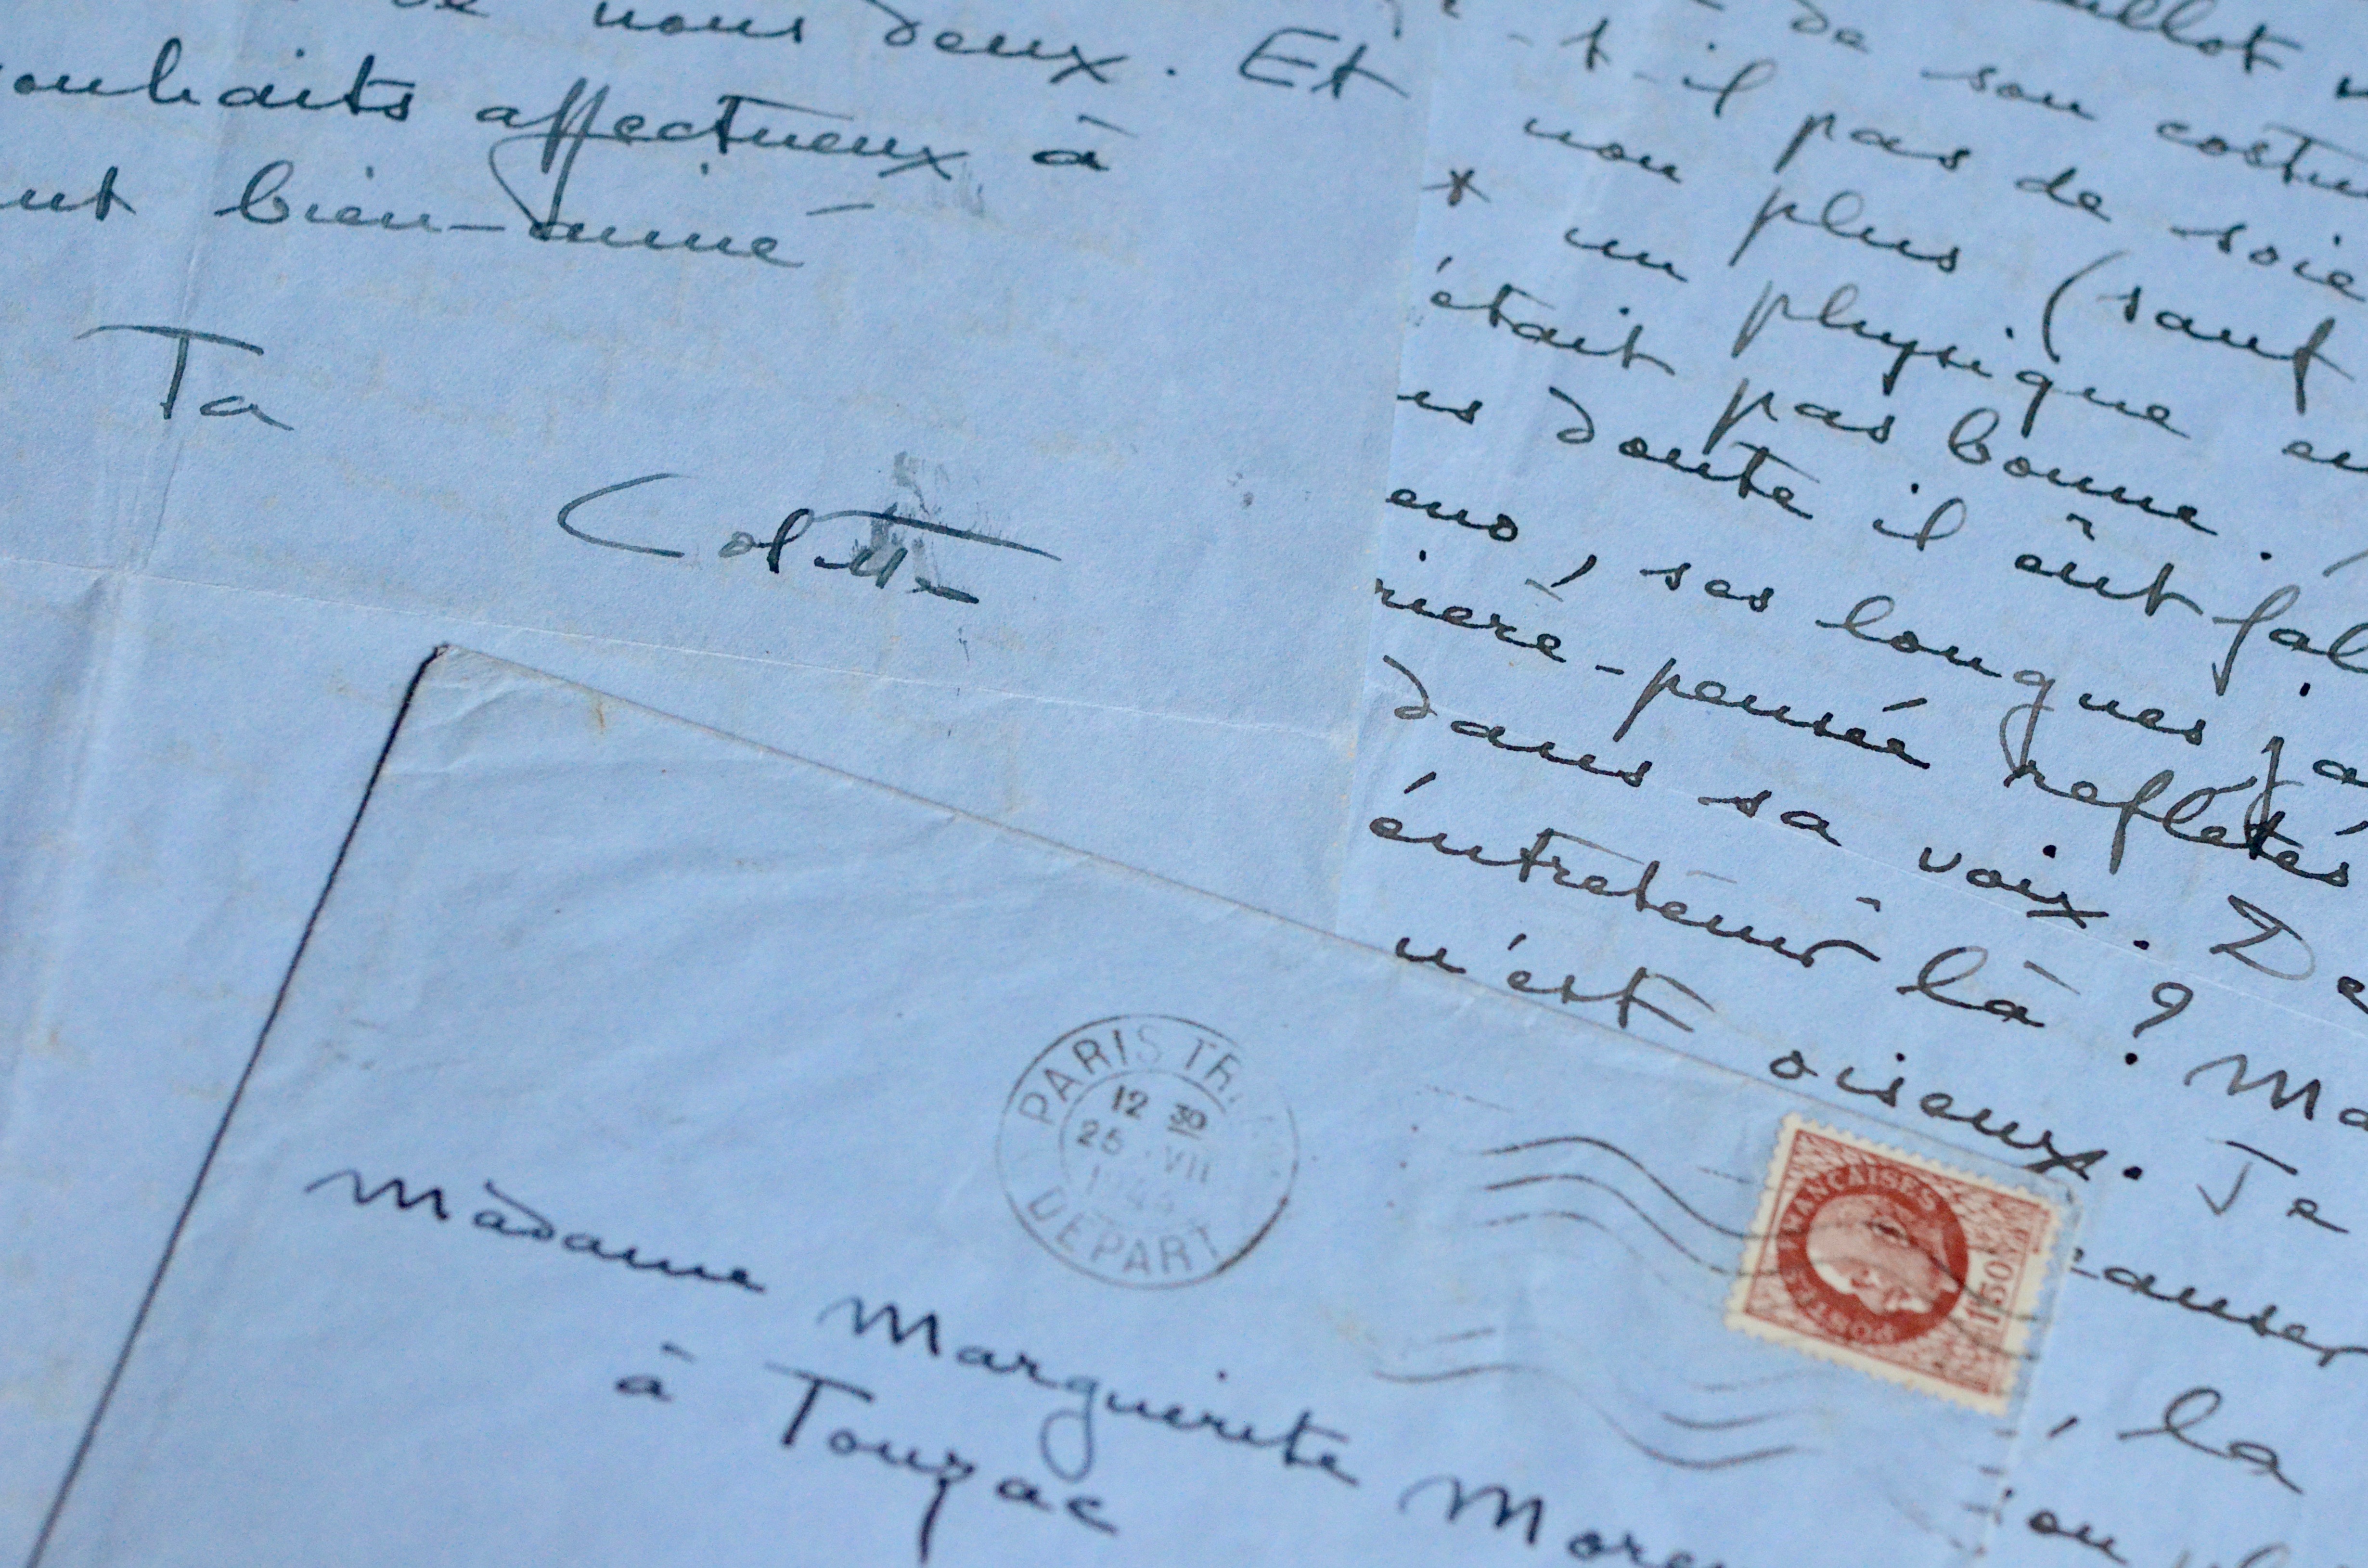 de nous deux. Et
ouhaits affectueux à
nt bien-aimé
Ta
Colette
de son costu
-t-il pas de soie
non plus (sauf
* un physique en
était pas bonne.
doute il eût fal
eno, ses longues ja
rière-pensée reflétés
dans sa voix. De
entretenir là ? Ma
n'est oiseux. Je
causer
, la
PARIS TR
12 30
25 VII
194
DEPART
POSTES FRANÇAISES
1F50
Madame Marguerite More
à Touzac